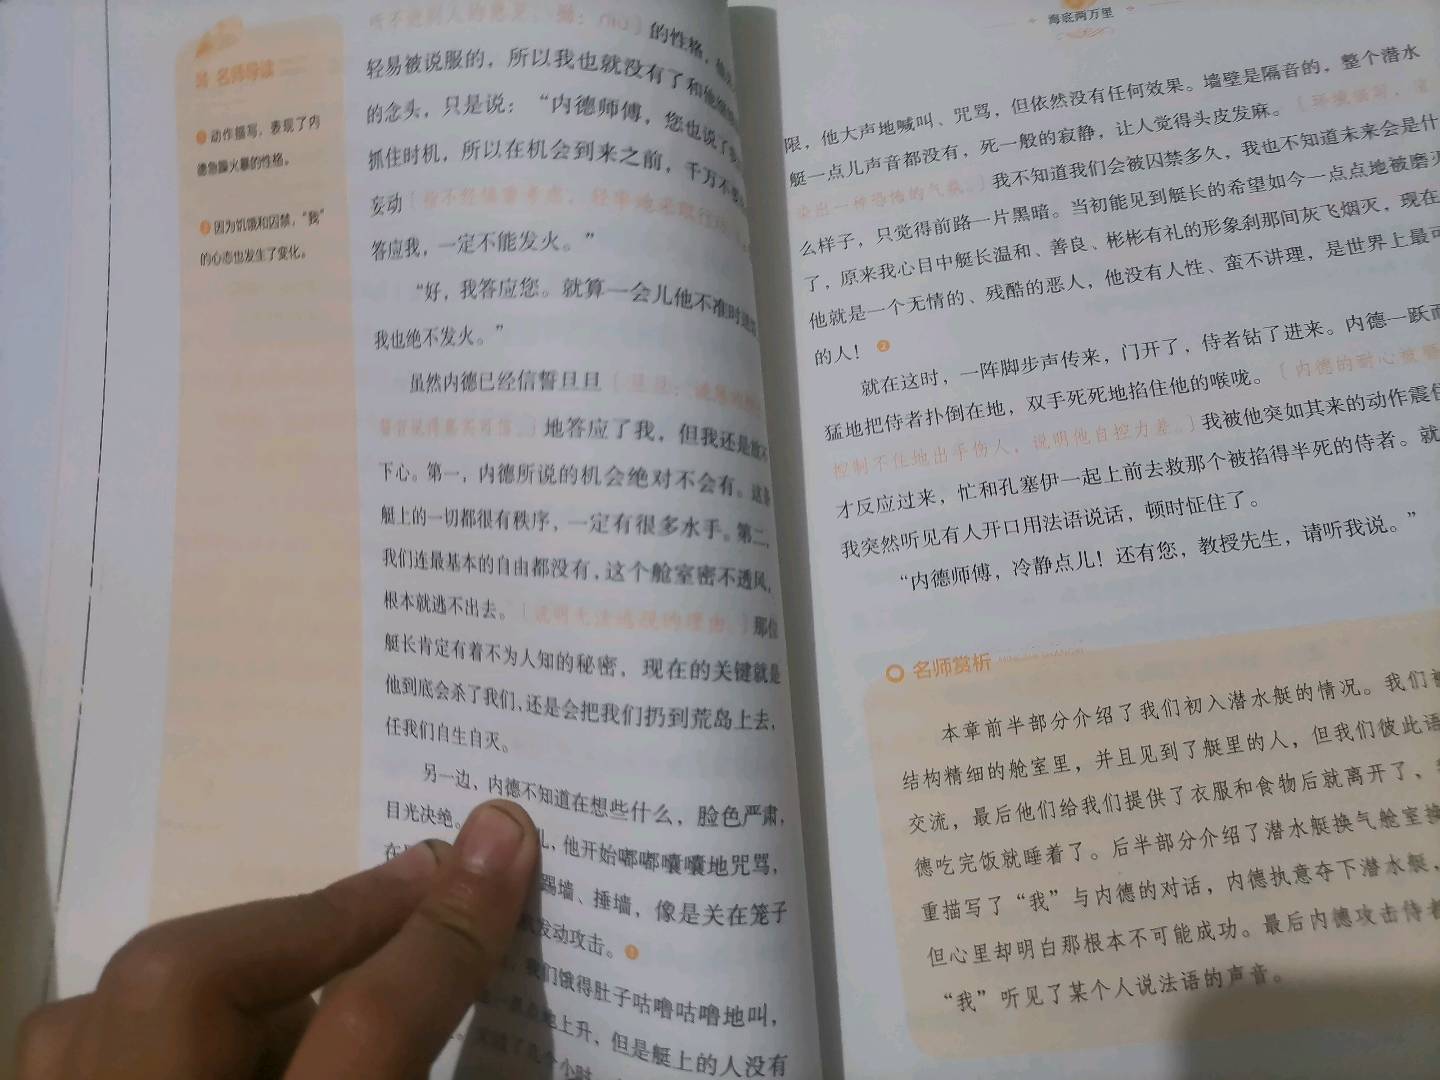 名师导读
动作描写，表现了内
德急躁火暴的性格。
因为饥饿和囚禁，“我”
的心态也发生了变化。
的性格，
轻易被说服的，所以我也就没有了和他
的念头，只是说：“内德师傅，您也说了
抓住时机，所以在机会到来之前，千万不要
妄动
答应我，一定不能发火。”
“好，我答应您。就算一会儿他不准时
我也绝不发火。”
虽然内德已经信誓旦旦
地答应了我，但我还是放不
下心。第一，内德所说的机会绝对不会有。这条
艇上的一切都很有秩序，一定有很多水手。第二，
我们连最基本的自由都没有，这个舱室密不透风，
根本就逃不出去。〔说明无法逃脱的理由。〕那位
艇长肯定有着不为人知的秘密，现在的关键就是
他到底会杀了我们，还是会把我们扔到荒岛上去，
任我们自生自灭。
另一边，内德不知道在想些什么，脸色严肃，
目光决绝。 儿，他开始嘟嘟囔囔地咒骂，
踢墙、捶墙，像是关在笼子
发动攻击。❶
我们饿得肚子咕噜咕噜地叫，
上升，但是艇上的人没有
几个小时
海底两万里
限，他大声地喊叫、咒骂，但依然没有任何效果。墙壁是隔音的，整个潜水
艇一点儿声音都没有，死一般的寂静，让人觉得头皮发麻。〔环境描写，
染出一种恐怖的气氛。〕我不知道我们会被囚禁多久，我也不知道未来会是什
么样子，只觉得前路一片黑暗。当初能见到艇长的希望如今一点点地被磨灭
了，原来我心目中艇长温和、善良、彬彬有礼的形象刹那间灰飞烟灭，现在
他就是一个无情的、残酷的恶人，他没有人性、蛮不讲理，是世界上最可
的人！❷
就在这时，一阵脚步声传来，门开了，侍者钻了进来。内德一跃而
猛地把侍者扑倒在地，双手死死地掐住他的喉咙。〔内德的耐心被
控制不住地出手伤人，说明他自控力差。〕我被他突如其来的动作震住
才反应过来，忙和孔塞伊一起上前去救那个被掐得半死的侍者。就
我突然听见有人开口用法语说话，顿时怔住了。
“内德师傅，冷静点儿！还有您，教授先生，请听我说。”
名师赏析
本章前半部分介绍了我们初入潜水艇的情况。我们被
结构精细的舱室里，并且见到了艇里的人，但我们彼此语
交流，最后他们给我们提供了衣服和食物后就离开了，
德吃完饭就睡着了。后半部分介绍了潜水艇换气舱室换
重描写了“我”与内德的对话，内德执意夺下潜水艇，
但心里却明白那根本不可能成功。最后内德攻击侍者
“我”听见了某个人说法语的声音。